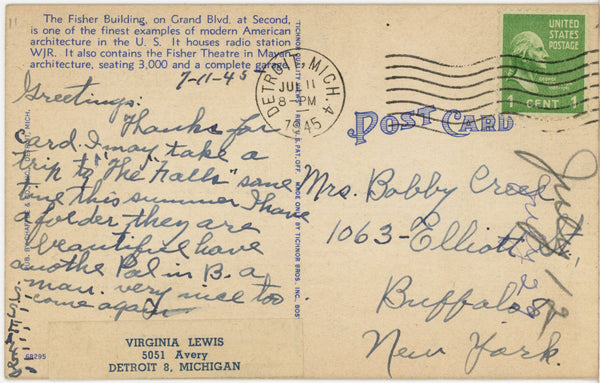 The Fisher Building, on Grand Blvd. at Second,
is one of the finest examples of modern American
architecture in the U. S. It houses radio station
WJR. It also contains the Fisher Theatre in Mayan
architecture, seating 3,000 and a complete garage.
7-11-45
Greetings:
Thanks for
Card. I may take a
trip to "The Falls" some
time this summer. I have
a folder they are
beautiful have
another Pal in B. a
man. very nice too
come again
68295
VIRGINIA LEWIS
5051 Avery
DETROIT 8, MICHIGAN
TICHNOR QUALITY VIEWS
REG. U.S. PAT. OFF.
MADE ONLY BY TICHNOR BROS. INC. BOS
DETROIT, MICH. 4
JUL 11
8-PM
1945
POST CARD
UNITED
STATES
POSTAGE
1 CENT 1
Mrs. Bobby Creed
1063-Elliott St.
Buffalo, 12,
New York.